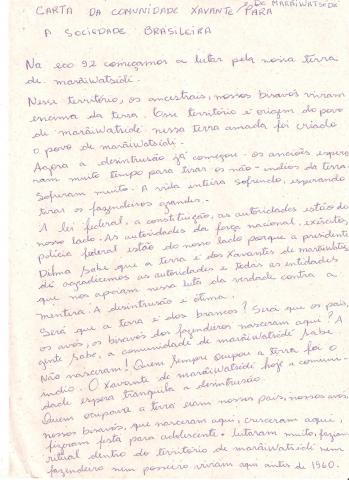 CARTA DA COMUNIDADE XAVANTE DE MARÃIWATSÉDÉ PARA
A SOCIEDADE BRASILEIRA
Na eco 92 começamos a lutar pela nossa terra
de marãiwatsédé.
Nesse território, os ancestrais, nossos bisavós viviam
encima da terra. Esse território é origem do povo
de marãiwatsédé nessa terra amada foi criado
o povo de marãiwatsédé.
Agora a desintrusão já começou. os anciões espera
ram muito tempo para tirar os não-índios da terra.
Sofreram muito. A vida inteira sofrendo, esperando
tirar os fazendeiros grandes.
A lei federal, a constituição, as autoridades estão do
nosso lado. As autoridades da força nacional, exército,
polícia federal estão do nosso lado porque a presidente
Dilma sabe que a terra é dos Xavantes de marãiwatsé
dé agradecemos as autoridades e todas as entidades
que nos apoiam nessa luta da verdade contra a
mentira. A desintrusão é ótima.
Será que a terra é dos brancos? Será que os pais,
os avós, os bisavós dos fazendeiros nasceram aqui? A
gente sabe, a comunidade de marãiwatsédé sabe.
Não nasceram! Quem sempre ocupou a terra foi o
índio. O Xavante de marãiwatsédé hoje a comuni-
dade espera tranquila a desintrusão.
Quem ocupava a terra eram nossos pais, nossos avós,
nossos bisavós, que nasceram aqui, cresceram aqui,
fizeram festa para adolescente. lutaram muito, faziam
ritual dentro do território de marãiwatsédé nem
fazendeiro nem posseiro viviam aqui antes de 1960.